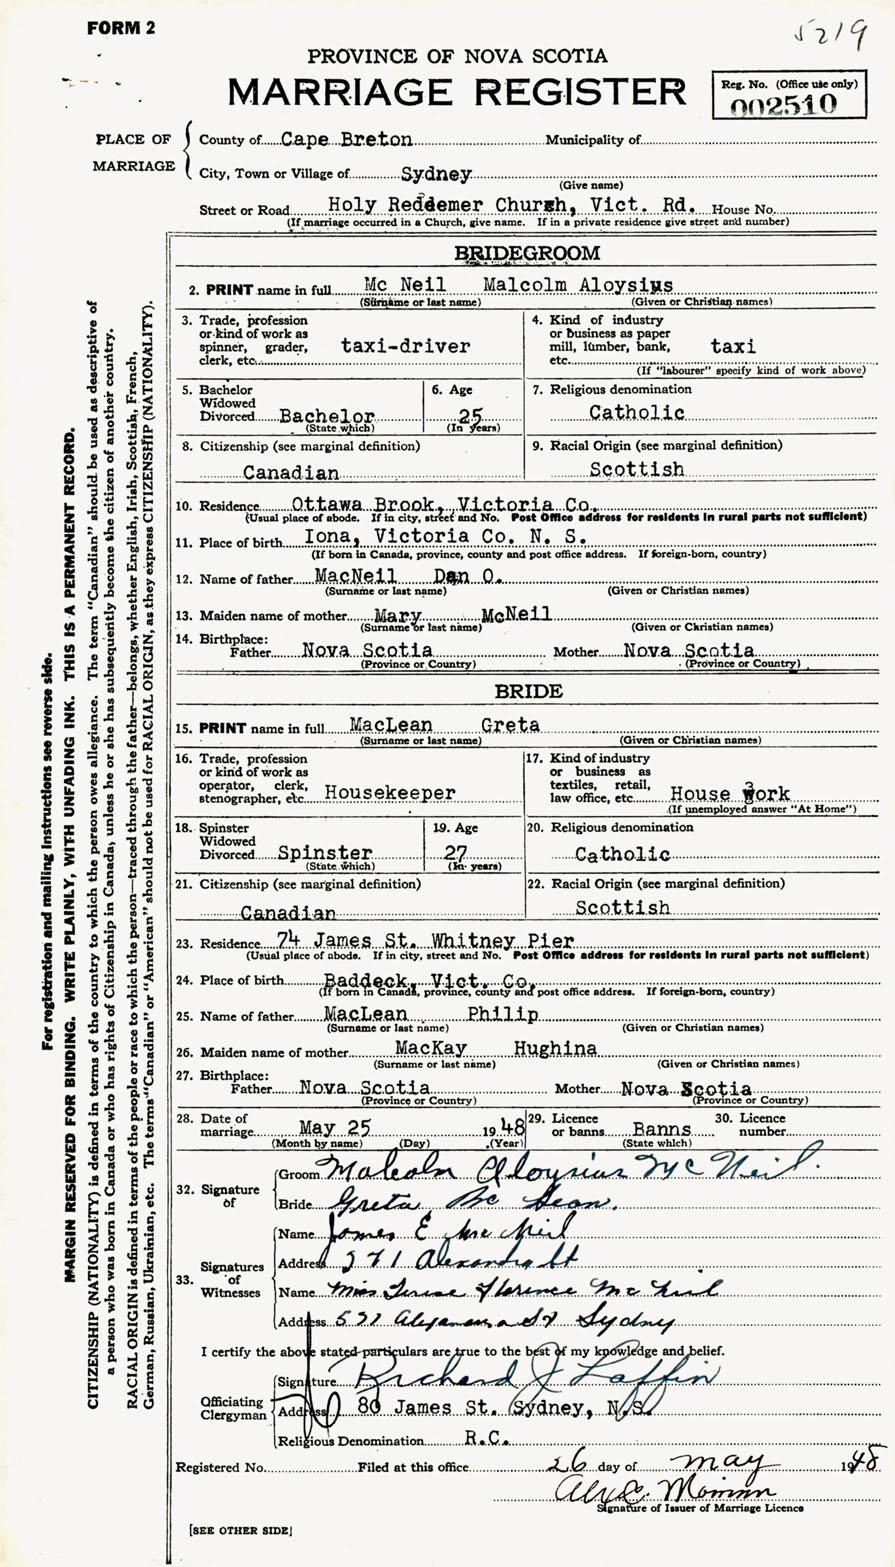 FORM 2
5219
PROVINCE OF NOVA SCOTIA
MARRIAGE REGISTER
Reg. No. (Office use only)
002510
PLACE OF MARRIAGE
County of Cape Breton Municipality of
City, Town or Village of Sydney
(Give name)
Street or Road Holy Redeemer Church, Vict. Rd. House No.
(If marriage occurred in a Church, give name. If in a private residence give street and number)
BRIDEGROOM
2. PRINT name in full Mc Neil Malcolm Aloysius
(Surname or last name) (Given or Christian names)
3. Trade, profession or kind of work as spinner, grader, clerk, etc. taxi-driver
4. Kind of industry or business as paper mill, lumber, bank, etc. taxi
(If "labourer" specify kind of work above)
5. Bachelor Widowed Divorced Bachelor
(State which)
6. Age 25
(In years)
7. Religious denomination
Catholic
8. Citizenship (see marginal definition)
Canadian
9. Racial Origin (see marginal definition)
Scottish
10. Residence Ottawa Brook, Victoria Co.
(Usual place of abode. If in city, street and No. Post Office address for residents in rural parts not sufficient)
11. Place of birth Iona, Victoria Co. N. S.
(If born in Canada, province, county and post office address. If foreign-born, country)
12. Name of father MacNeil Dan O.
(Surname or last name) (Given or Christian names)
13. Maiden name of mother Mary McNeil
(Surname or last name) (Given or Christian names)
14. Birthplace:
Father Nova Scotia Mother Nova Scotia
(Province or Country) (Province or Country)
BRIDE
15. PRINT name in full MacLean Greta
(Surname or last name) (Given or Christian names)
16. Trade, profession or kind of work as operator, clerk, stenographer, etc. Housekeeper
17. Kind of industry or business as textiles, retail, law office, etc. House work
(If unemployed answer "At Home")
18. Spinster Widowed Divorced Spinster
(State which)
19. Age 27
(In years)
20. Religious denomination
Catholic
21. Citizenship (see marginal definition)
Canadian
22. Racial Origin (see marginal definition)
Scottish
23. Residence 74 James St. Whitney Pier
(Usual place of abode. If in city, street and No. Post Office address for residents in rural parts not sufficient)
24. Place of birth Baddeck, Vict. Co.
(If born in Canada, province, county and post office address. If foreign-born, country)
25. Name of father MacLean Philip
(Surname or last name) (Given or Christian names)
26. Maiden name of mother MacKay Hughina
(Surname or last name) (Given or Christian names)
27. Birthplace:
Father Nova Scotia Mother Nova Scotia
(Province or Country) (Province or Country)
28. Date of marriage May 25 1948
(Month by name) (Day) (Year)
29. Licence or banns Banns
(State which)
30. Licence number
32. Signature of
Groom Malcolm Aloysius McNeil.
Bride Greta Mc Lean.
33. Signatures of Witnesses
Name James E McNeil
Address 571 Alexandra St
Name Miss Terese Florence McNeil
Address 571 Alexandra St Sydney
I certify the above stated particulars are true to the best of my knowledge and belief.
Officiating Clergyman
Signature Richard J Laffin
Address 80 James St. Sydney, N.S.
Religious Denomination R.C.
Registered No. Filed at this office 26 day of May 1948
Signature of Issuer of Marriage Licence
[SEE OTHER SIDE]
For registration and mailing instructions see reverse side.
MARGIN RESERVED FOR BINDING. WRITE PLAINLY, WITH UNFADING INK. THIS IS A PERMANENT RECORD.
CITIZENSHIP (NATIONALITY) is defined in terms of the country to which the person owes allegiance. The term "Canadian" should be used as descriptive of
a person who was born in Canada or who has rights of Citizenship in Canada, unless he or she has subsequently become the citizen of another country.
RACIAL ORIGIN is defined in terms of the people or race to which the person—traced through the father—belongs, whether English, Irish, Scottish, French,
German, Russian, Ukrainian, etc. The terms "Canadian" or "American" should not be used for RACIAL ORIGIN, as they express CITIZENSHIP (NATIONALITY).